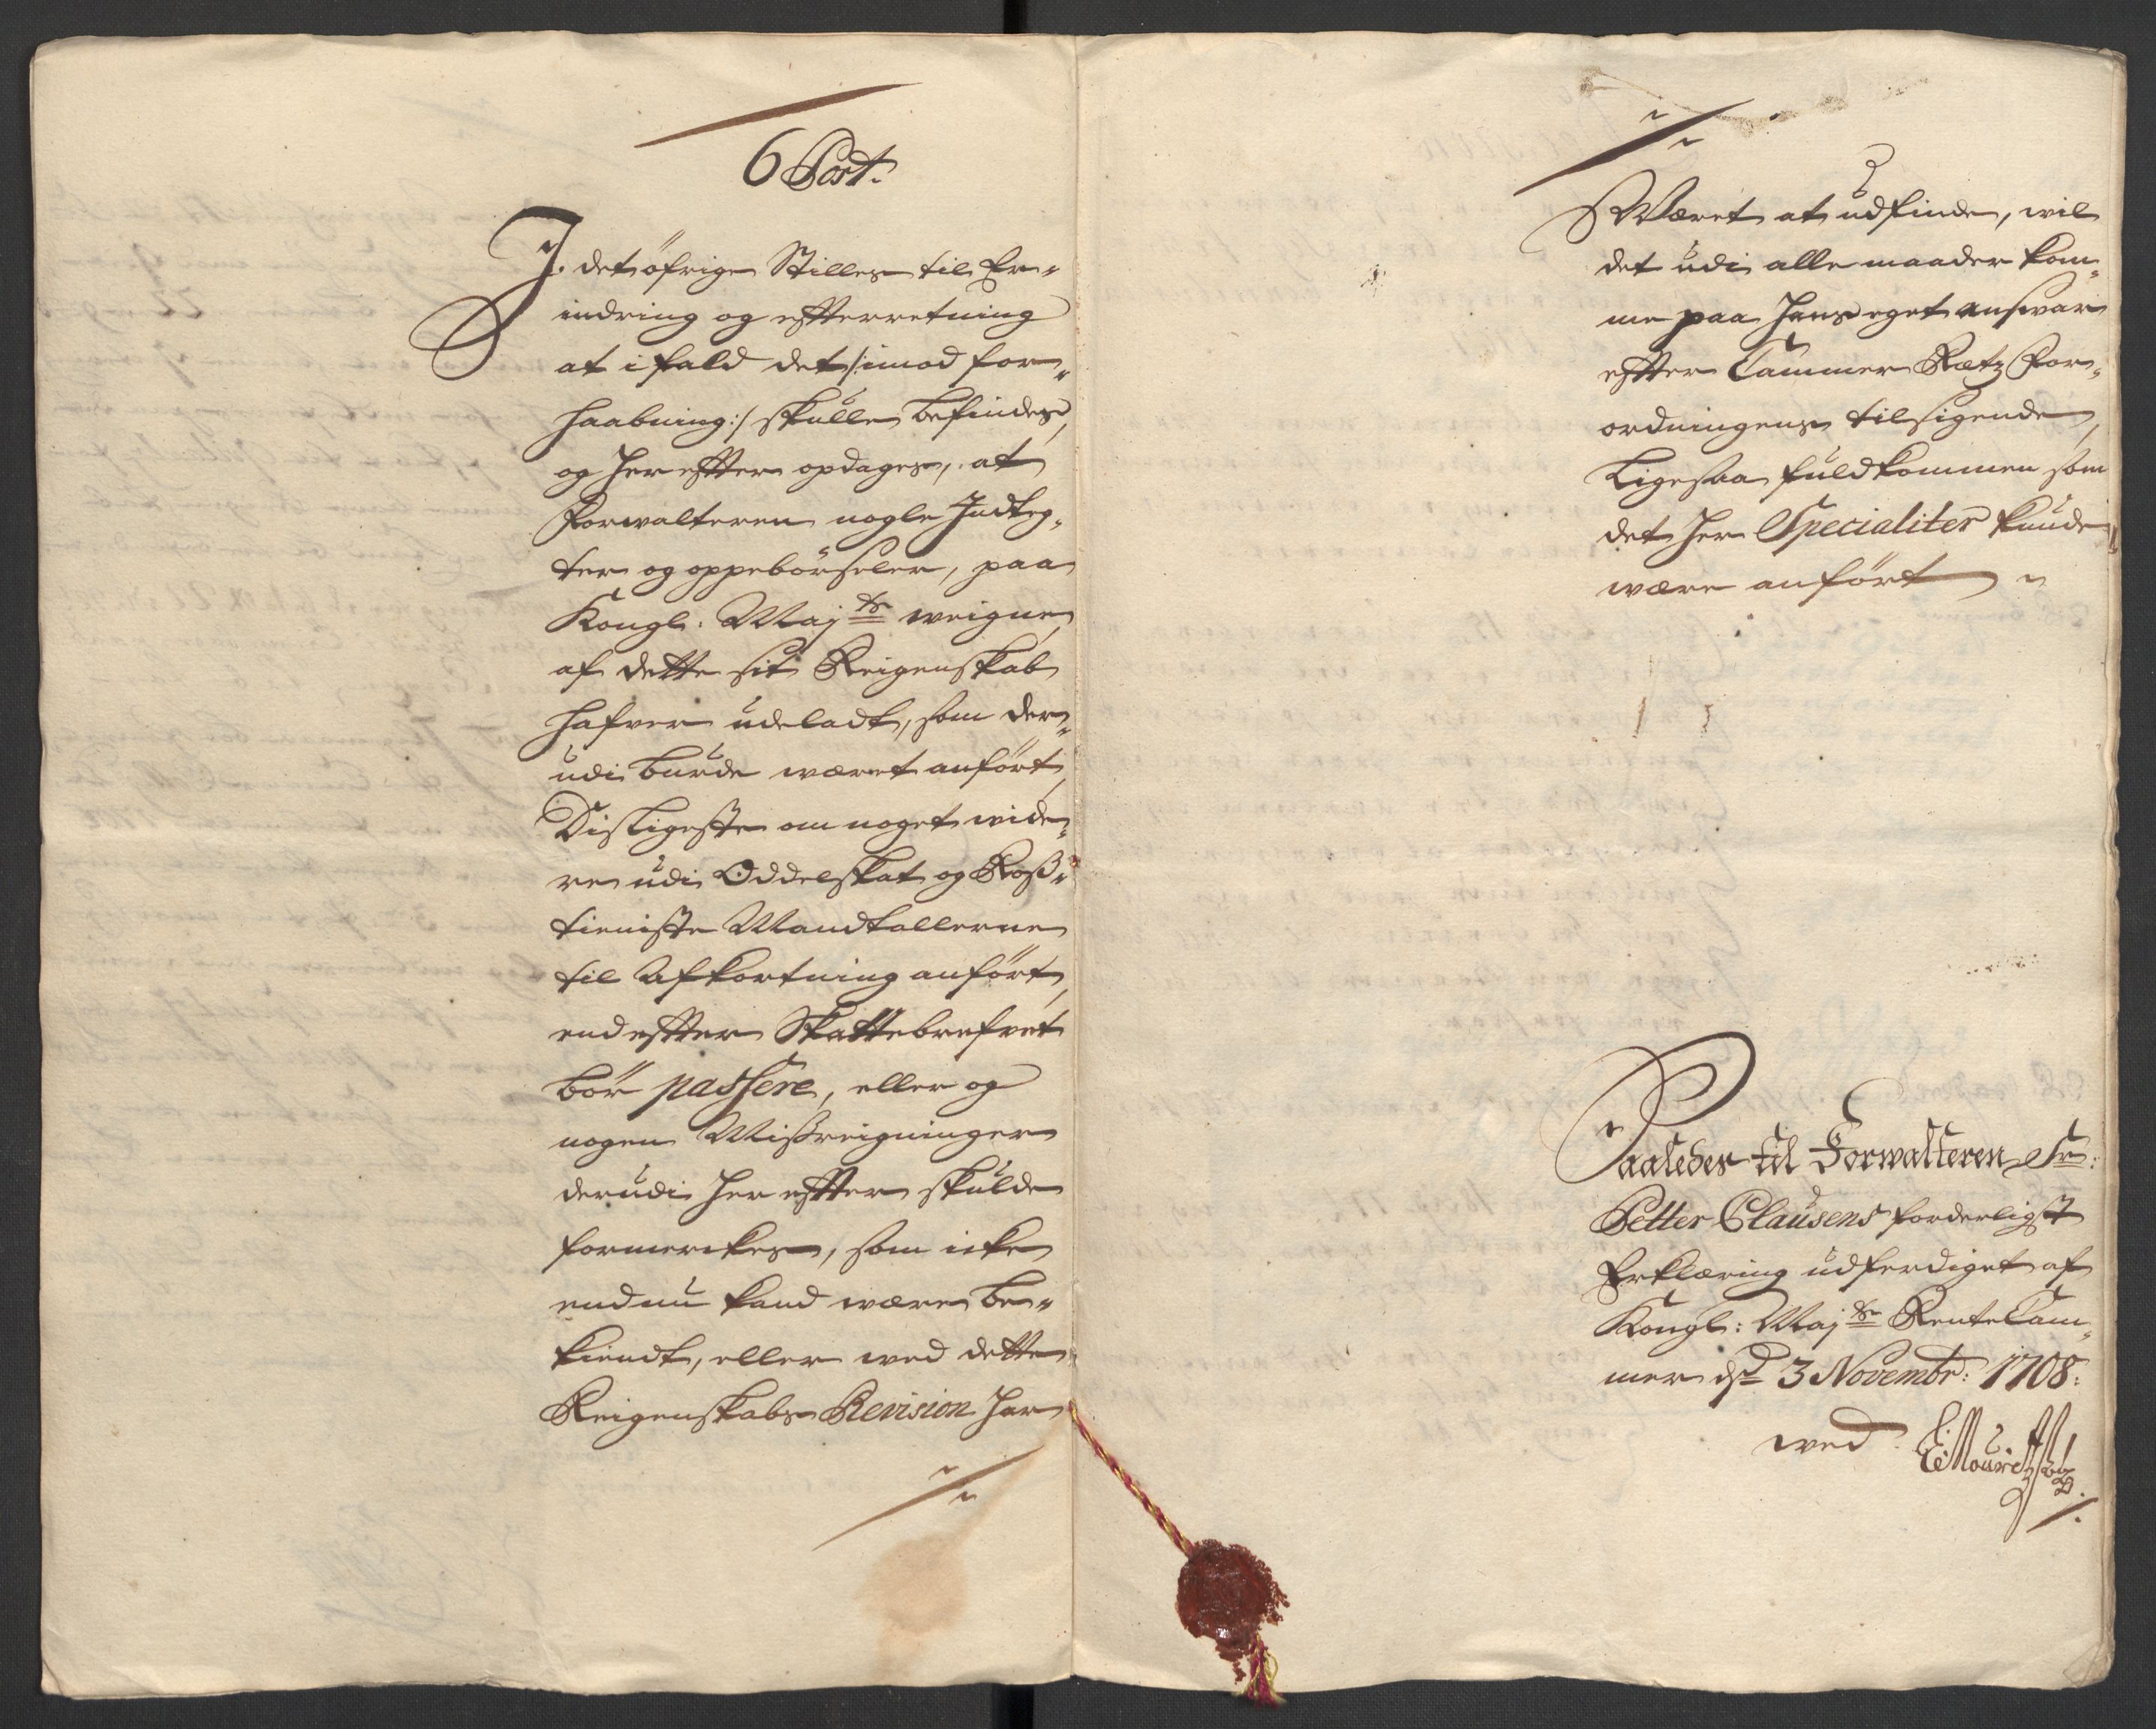 6 Post.
I det öfrige Stilles til Er„
indring og efterretning
at i fald det /: imod for„
haabning :/ skulle befindes,
og her efter opdages, at
Forwalteren nogle Indteg„
ter og oppebörseler, paa
Kongl: Maj:ts weigne,
af dette sit Reigenskab
hafver udeladt, som der„
udi burde wæret anfört,
Disligeste om noget wide„
re udi Oddelskat og Ross„
tieniste Mandtallerne
til Afkortning anfört,
end efter Skattebrefvet
bör passere, eller og
nogen Missreigninger
derudi her efter skulde
formerkes, som icke
endnu kand være be„
kiendt, eller wed dette
Reigenskabs Revision har
Wæret at udfinde, wil
det udi alle maader kom„
me paa hans eget answar
efter Cammer Rætz For„
ordningens tilsigende,
Ligesaa fuldkommen som
det her Specialiter kunde
være anfört
Saaledes til Forwalteren Sr:
Petter Clausens forderligst
Erklæring udferdiget af
Kongl: Maj:ts Rente Cam„
mer dend 3 Novembr: 1708.
wed